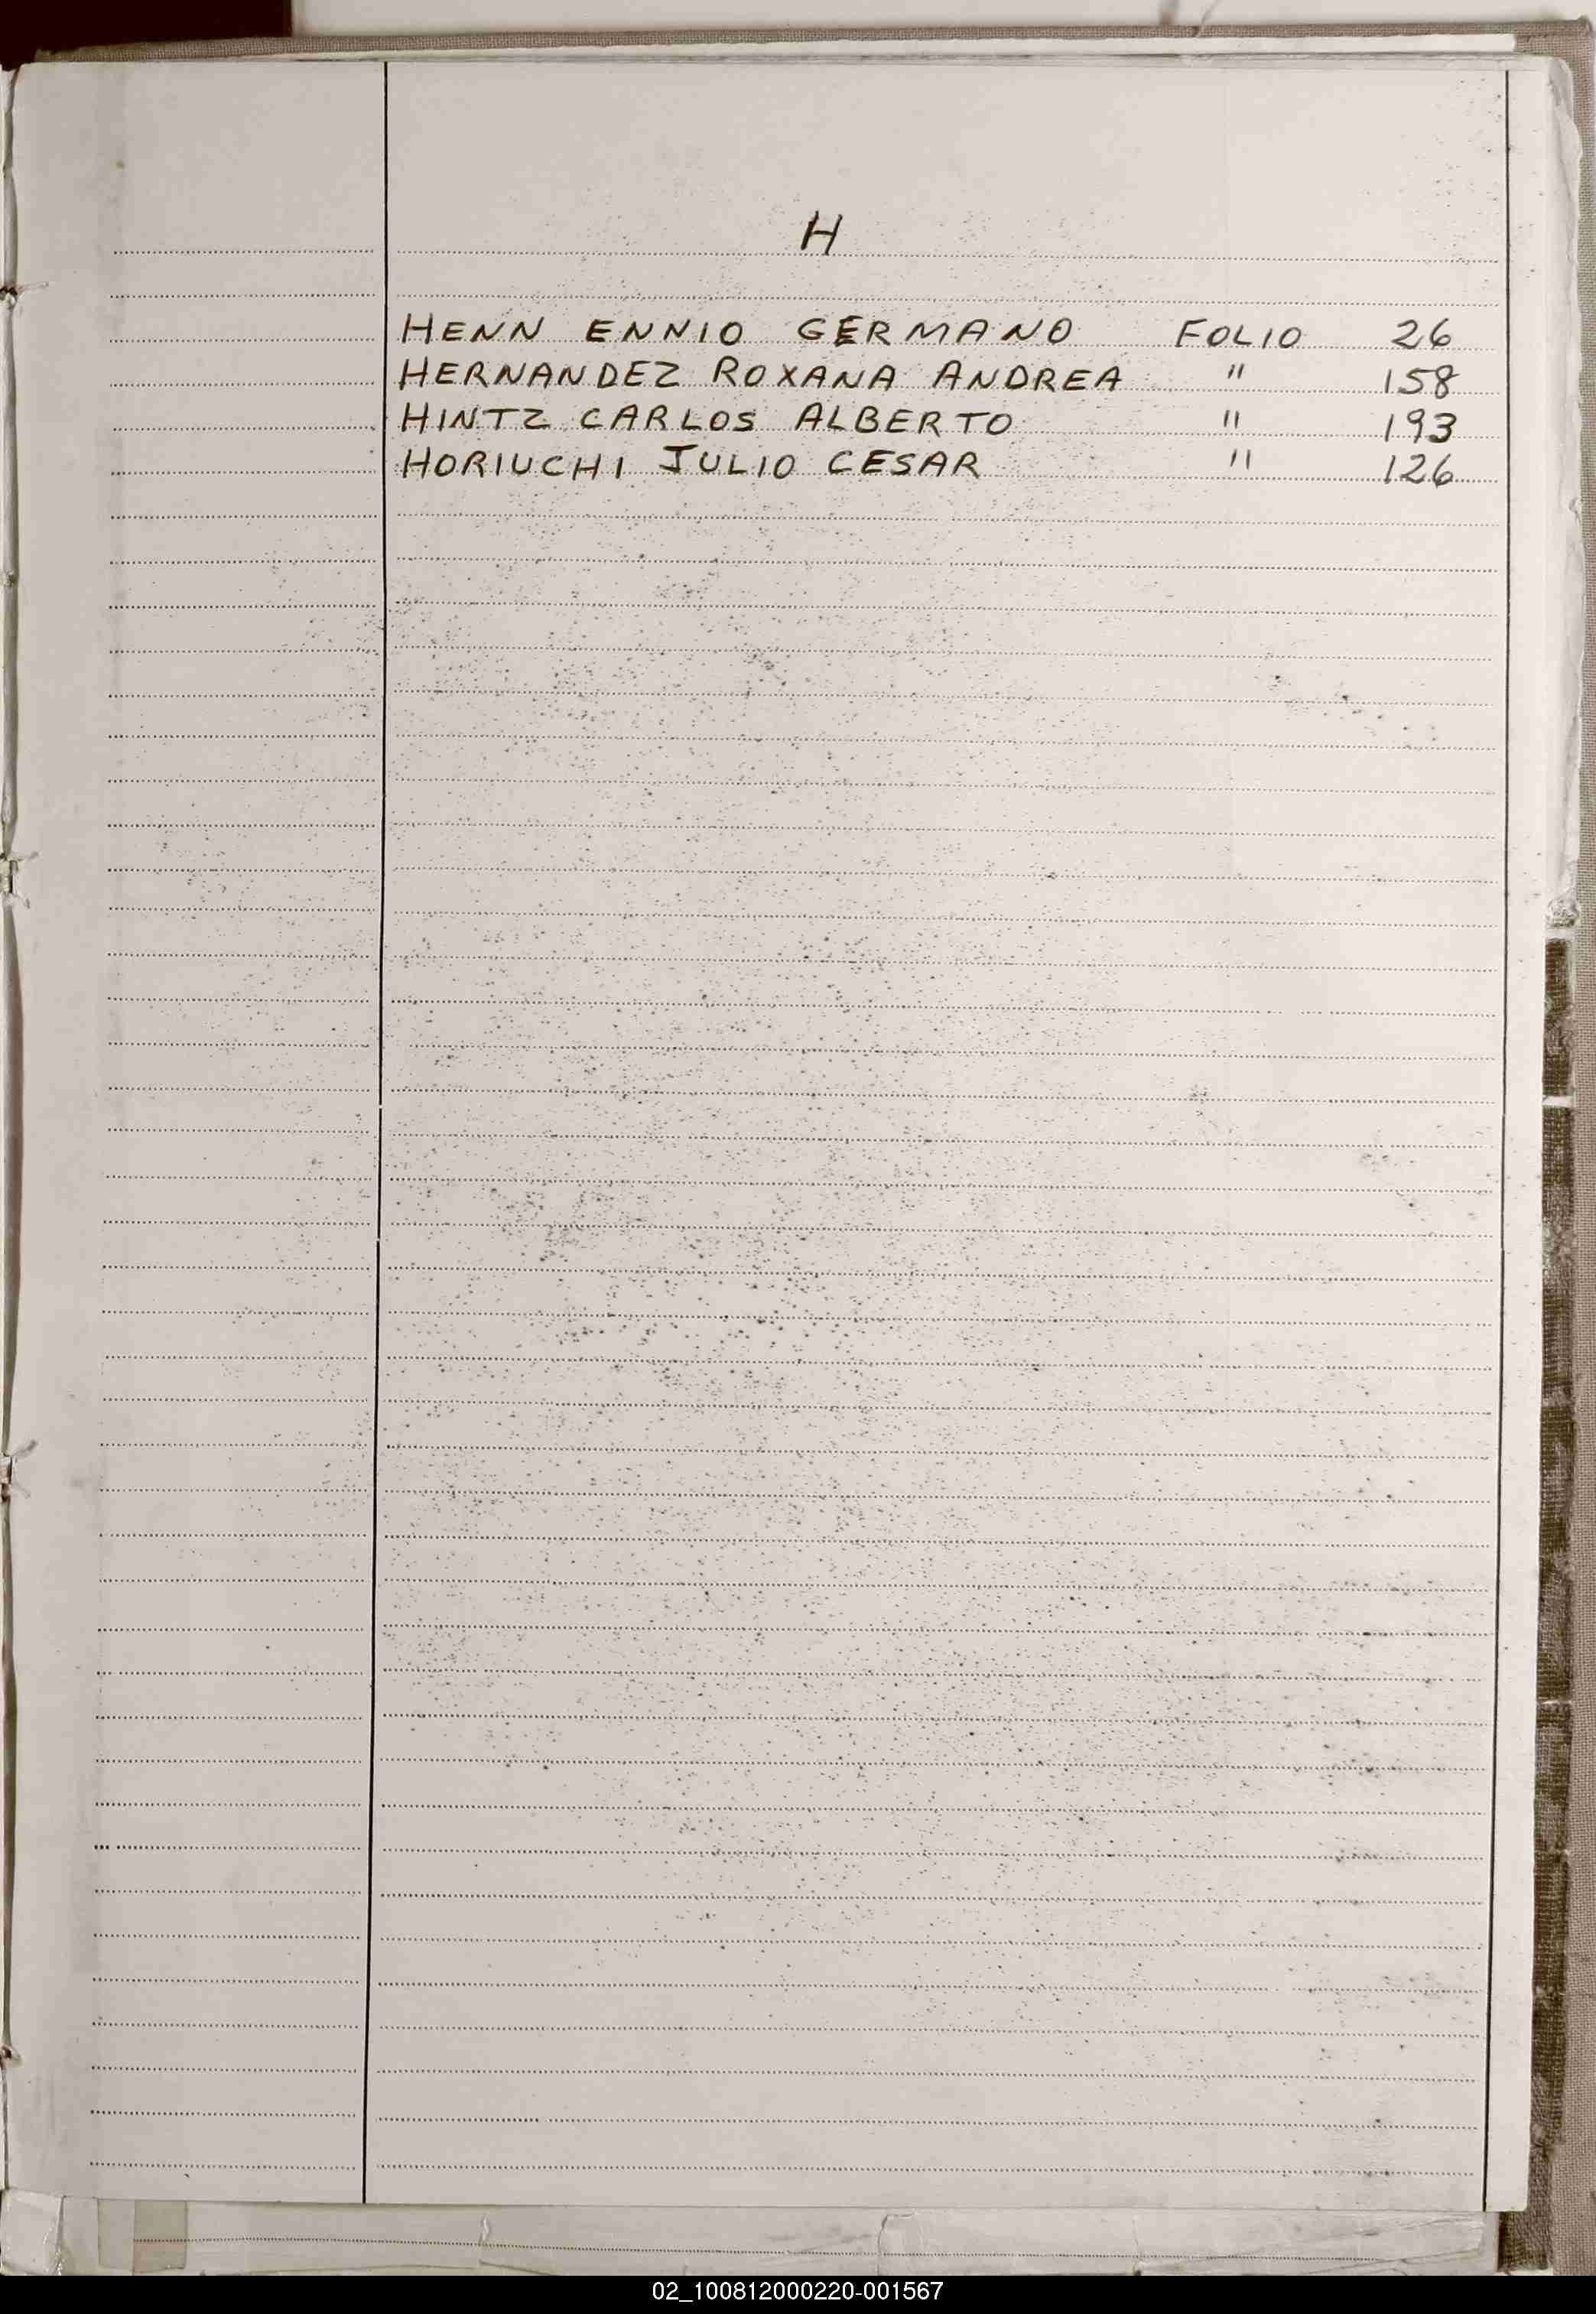 H
HENN ENNIO GERMANO FOLIO 26
HERNANDEZ ROXANA ANDREA " 158
HINTZ CARLOS ALBERTO " 193
HORIUCHI JULIO CESAR " 126
02_100812000220-001567